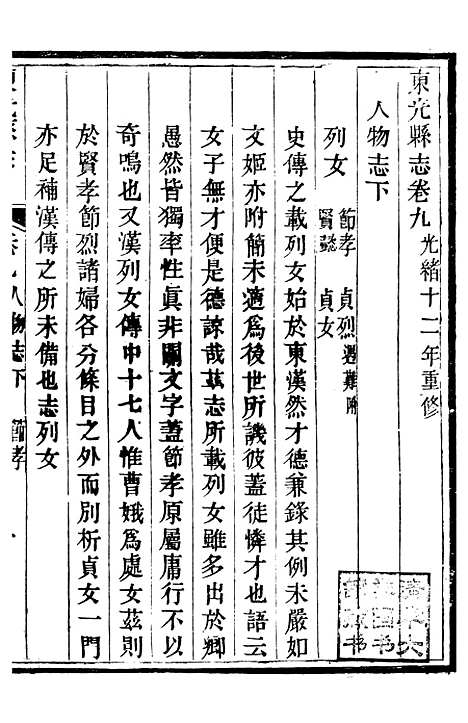 東光縣志卷九 光緒十二年重修
人物志下
列女 節孝 貞烈 遇難附
賢懿 貞女
史傳之載列女始於東漢然才德兼錄其例未嚴如
文姬亦附簡末適爲後世所譏彼蓋徒憐才也語云
女子無才便是德諒哉茲志所載列女雖多出於鄉
愚然皆獨率性眞非關文字蓋節孝原屬庸行不以
奇鳴也又漢列女傳中十七人惟曹娥爲處女茲則
於賢孝節烈諸婦各分條目之外而別析貞女一門
亦足補漢傳之所未備也志列女
卷九人物志下 節孝